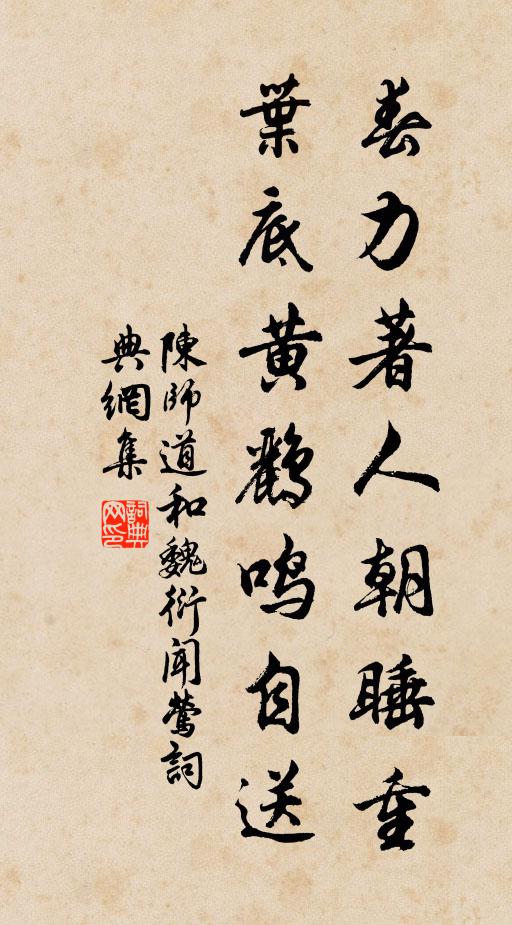 春力著人朝睡重
葉底黄鸝鳴自送
陳師道和魏衍聞鶯詞
典網集
詞典
网印